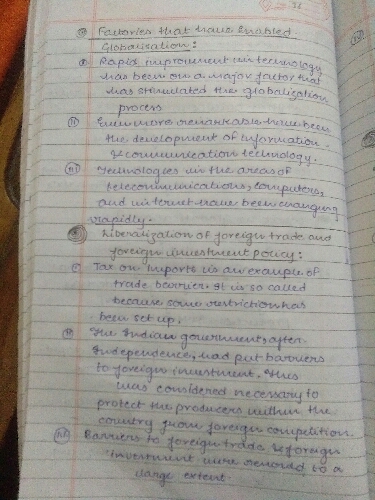 36
Factories that have Enabled
Globalisation:
(i) Rapid improvment in technology
has been on a major factor that
has stimulated the globalization
process
(ii) Even more remarkable have been
the development of information
& communication technology.
(iii) Technologies in the areas of
telecommunications, computers,
and internet have been changing
rapidly.
Liberalization of foreign trade and
foreign investment policy:
(i) Tax on imports is an example of
trade barrier. It is so called
because some restriction has
been set up.
(ii) The Indian government, after
Independence, had put barriers
to foreign investment. This
was considered necessary to
protect the producers within the
country from foreign competition.
(iii) Barriers to foreign trade & foreign
investment were removed to a
large extent.